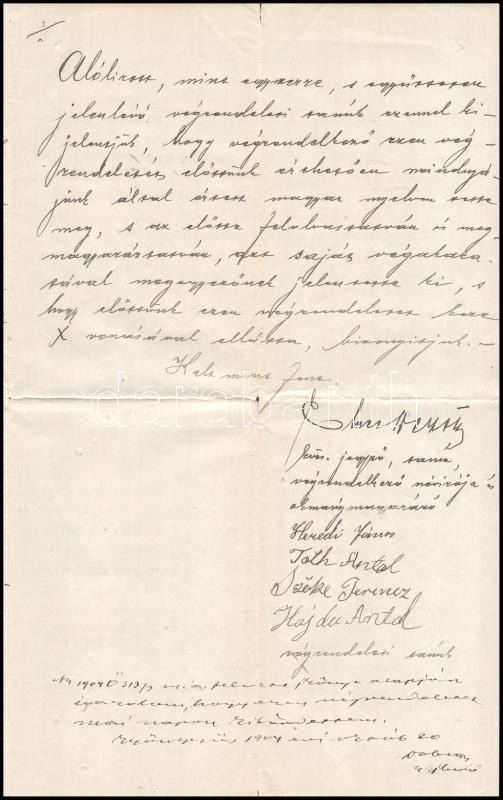 Alólirott, mint egyszerre, s együttesen
jelenlévő végrendeleti tanúk ezennel ki-
jelentjük, hogy végrendelkező ezen vég-
rendeletét előttünk érthetően mindnyá-
junk által értett magyar nyelven tette
meg, s az előtte felolvastatván és meg-
magyaráztatván, azt saját végakara-
tával megegyezőnek jelentette ki, s
hogy előttünk ezen végrendeletet keze
X vonásával ellátta, bizonyitjuk.-
Kelt mint fent.
darabanth
jegyző, tanú,
végrendelkező névirója s
okmánymagyarázó
Heredi János
Tóth Antal
Szőke Ferencz
Hajdu Antal
végrendeleti tanúk
1904 Ö 313/3
igazolom, hogy ezen végrendeletet
mai napon kihirdettem.
1904 évi 20